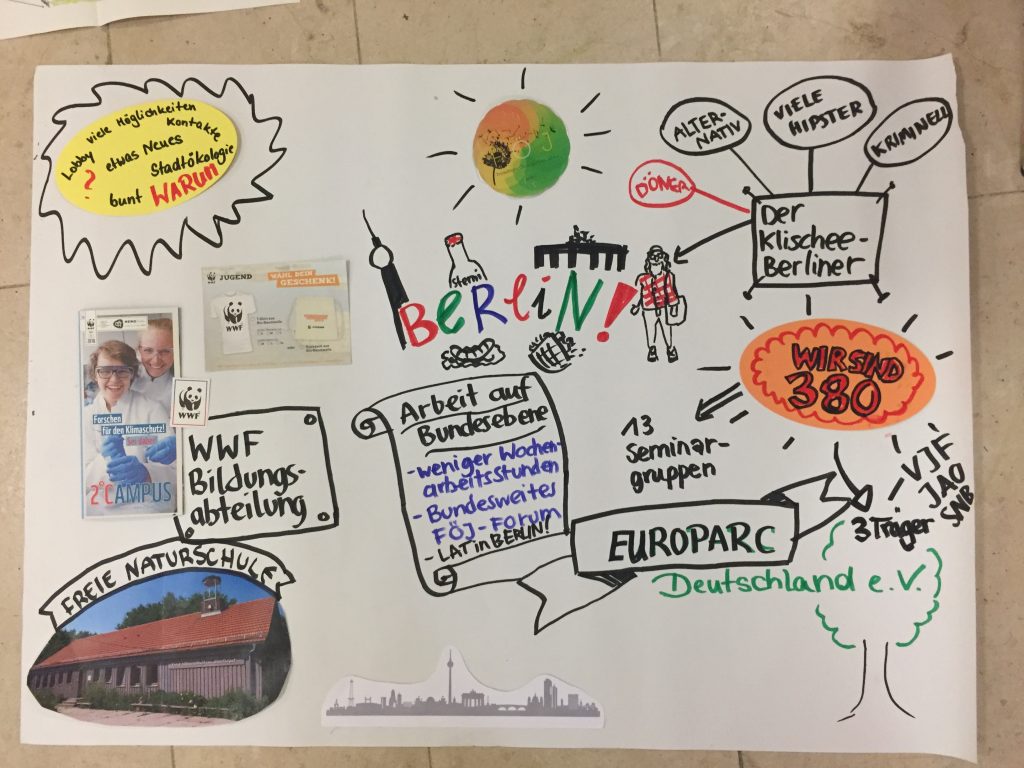 Lobby viele Möglichkeiten
Kontakte
? etwas Neues
Stadtökologie
bunt WARUM
FÖJ
ALTER-
NATIV
VIELE
HIPSTER
KRIMINELL
DÖNER
Der
Klischee-
Berliner
Sterni
BERLIN!
WWF JUGEND
WÄHL DEIN
GESCHENK!
WWF
WWF
Forschen
für den Klimaschutz!
Sei dabei!
2°CAMPUS
WWF
WWF
Bildungs-
abteilung
Arbeit auf
Bundesebene
- weniger Wochen-
arbeitsstunden
- Bundesweites
FÖJ-Forum
- LAT in BERLIN!
WIR SIND
380
13
Seminar-
gruppen
3 Träger
- VJF
JAO
SNB
EUROPARC
Deutschland e.V.
FREIE NATURSCHULE